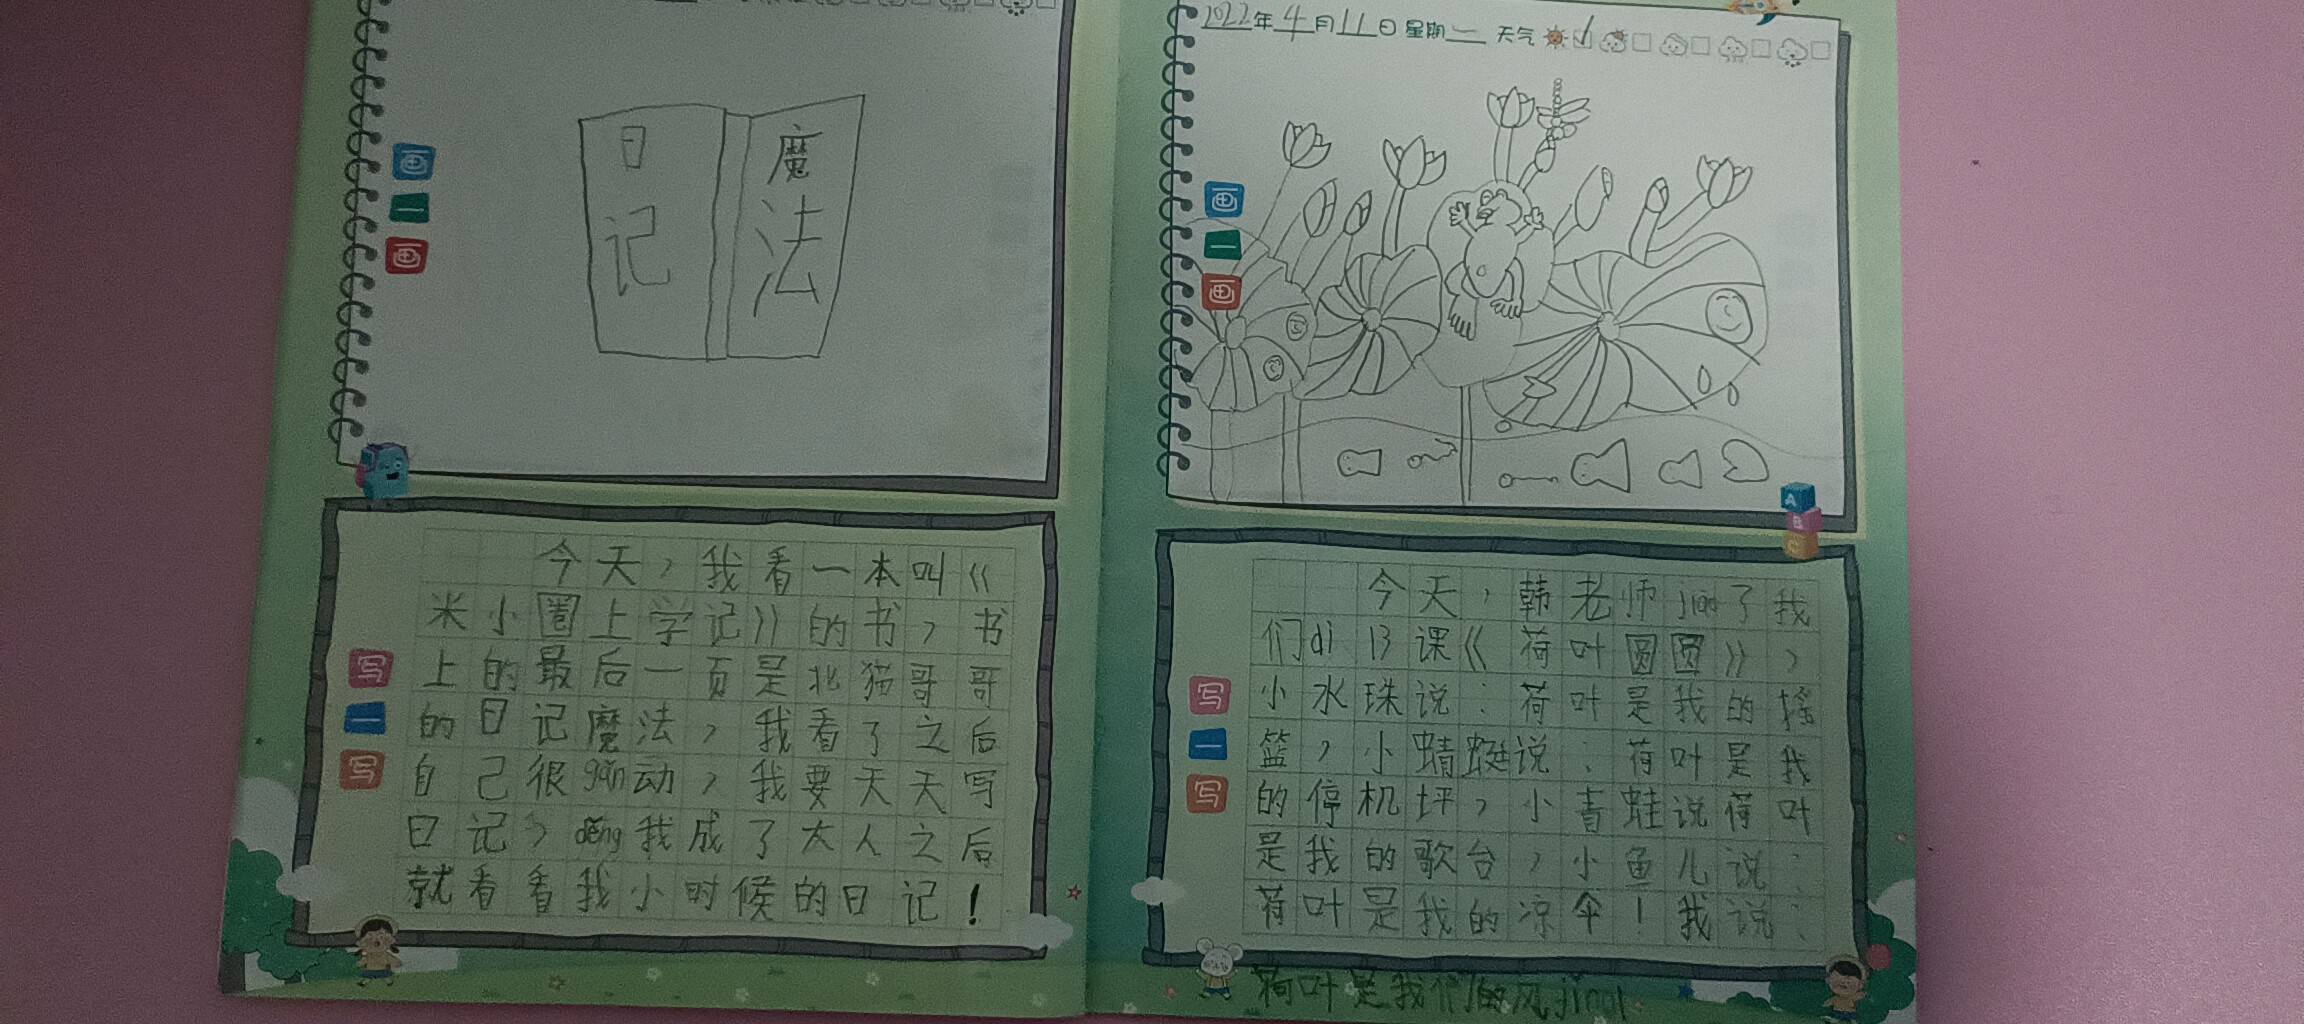 日记
魔法
画一画
今天，我看一本叫《
米小圈上学记》的书，书
上的最后一页是北猫哥哥
的日记魔法，我看了之后
自己很gǎn动，我要天天写
日记，děng我成了大人之后
就看看我小时候的日记！
写一写
2022年4月11日星期一 天气
画一画
今天，韩老师jiao了我
们di 13课《荷叶圆圆》，
小水珠说：荷叶是我的摇
篮，小蜻蜓说：荷叶是我
的停机坪，小青蛙说荷叶
是我的歌台，小鱼儿说：
荷叶是我的凉伞！我说：
荷叶是我们的风jing!
写一写
A
B
C